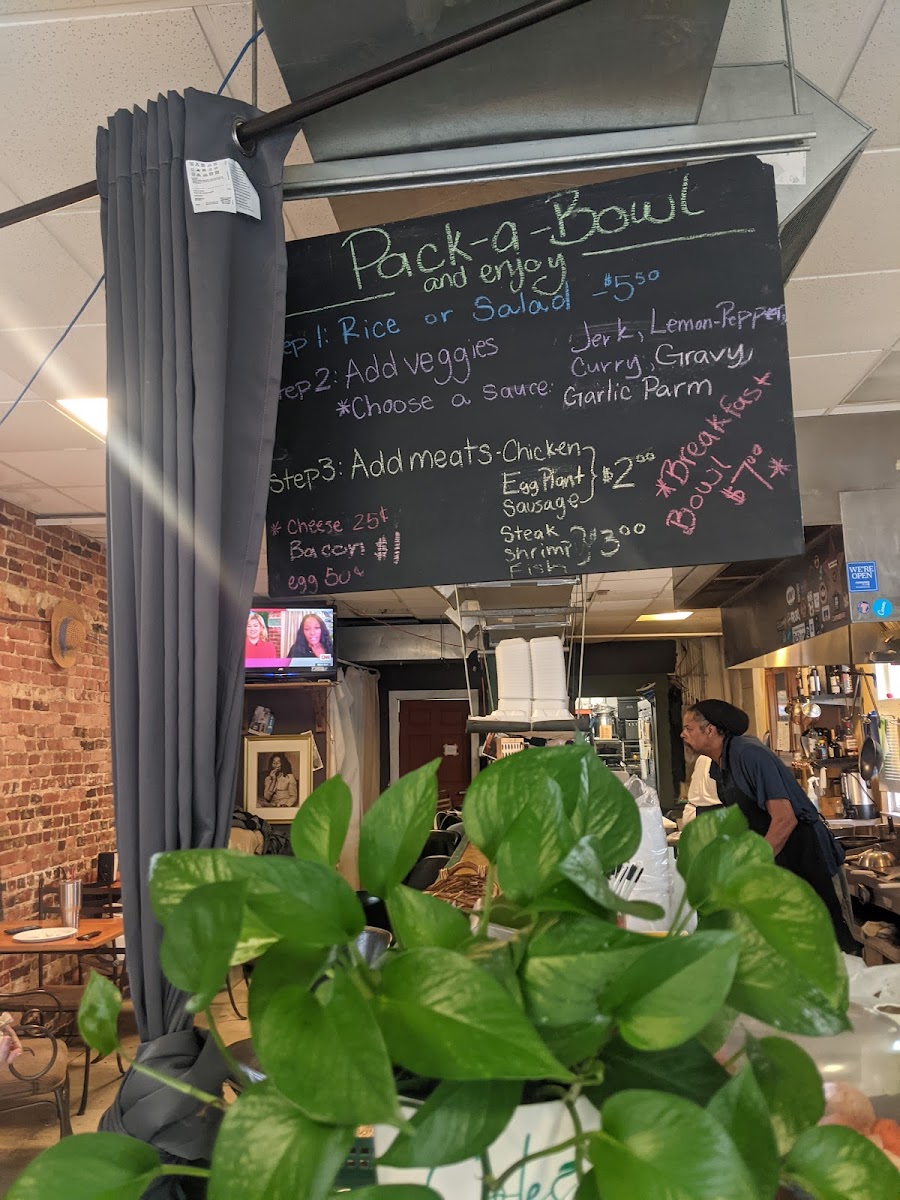 Pack-a-Bowl
and enjoy
ep 1: Rice or Salad - $5.50
tep2: Add veggies
*Choose a sauce: Jerk, Lemon-Pepper,
Curry, Gravy,
Garlic Parm
Step3: Add meats - Chicken
Egg Plant
Sausage
$2.00
Steak
Shrimp
Fish
$3.00
* Cheese 25¢
Bacon $1
egg 50¢
*Breakfast
Bowl
$7.00*
WE'RE
OPEN
CNN